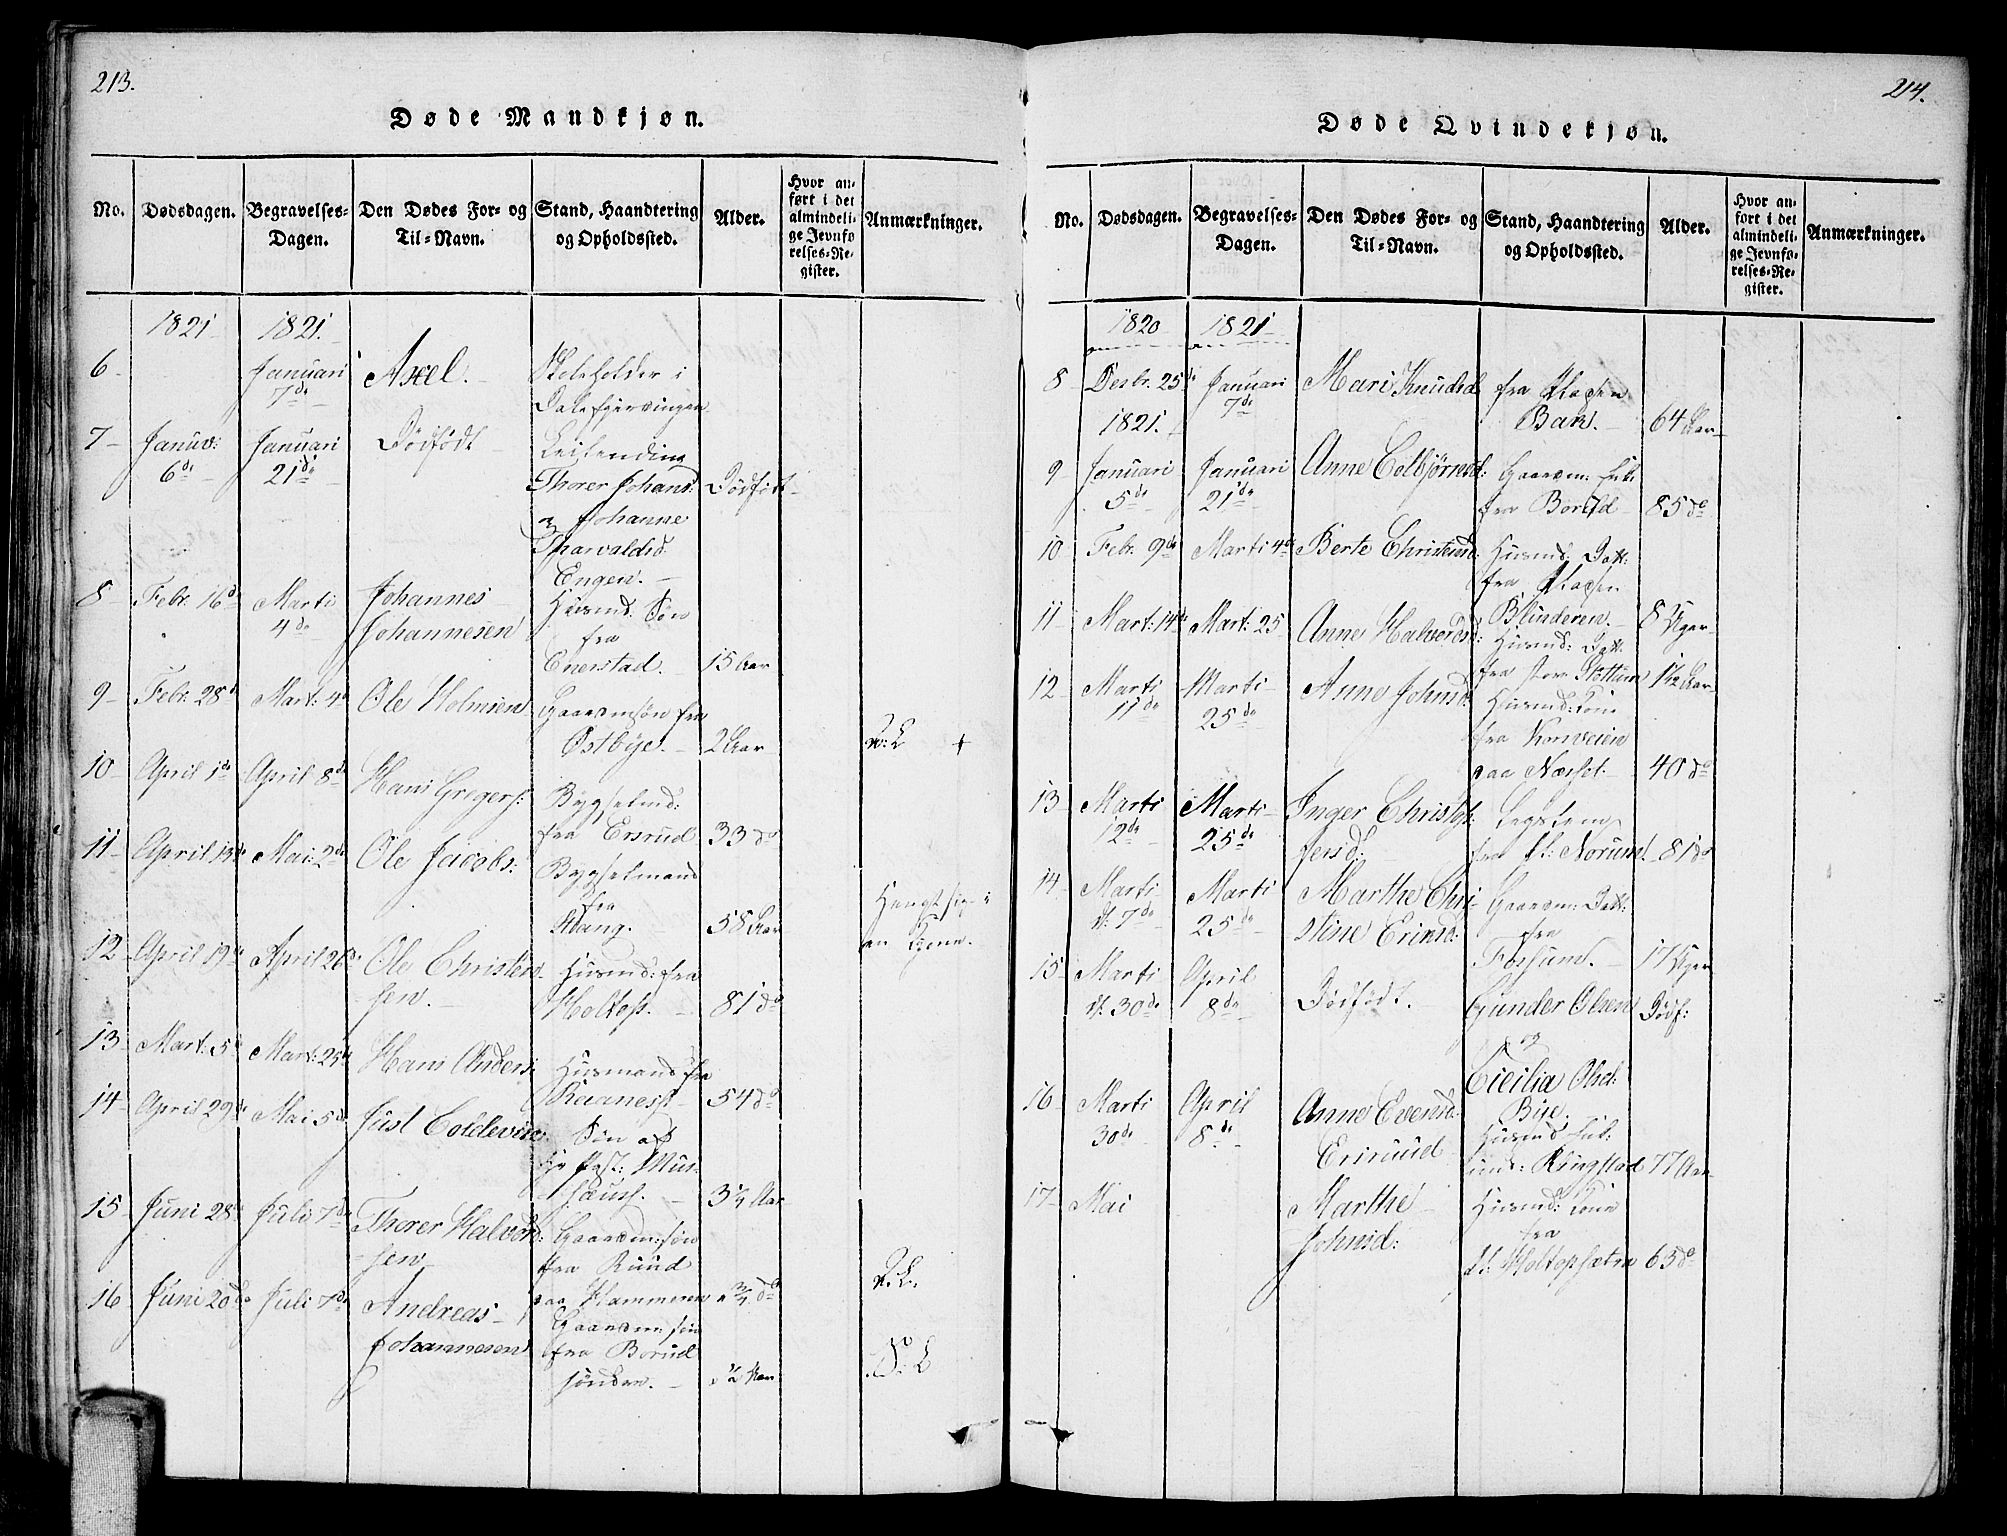 213.
Døde Mandkjøn.
No. Dødsdagen. Begravelses-Dagen. Den Dødes For- og Til-Navn. Stand, Haandtering og Opholdssted. Alder. Hvor anført i det almindelige Jevnførelses-Register. Anmærkninger.
1821 1821.
6 Januari 7de Axel. Skoleholder i
7 Januar: 6de Januari 21de Dödfödt Leilending
Thorer Johans: Dödfödt
Johanne
Tharvaldsd:
Engen.
8 Febr. 16de Marti 4de Johannes Johannesen Husmd: Sön
fra
Enerstad. 15 Aar
9 Febr. 28de Mart: 4de Ole Holmsen Gaardmsön fra
Østbye. 2 Aar
10 April 1de April 8de Hans Gregers: Bygselmd:
fra Ersrud 33 do
11 April 13de Mai: 2de Ole Jacobs: Bygselmand
fra
Mang. 58 Aar Hengt sig i
en
12 April 19de April 26de Ole Christensen. Husmd: fra
Holtops. 81 do
13 Mart: 5de Mart: 25de Hans Anders: Husmand fra
Ravaness 54 do
14 April 29de Mai 5de Just Coldevin Sön af
Hr Past: Mus-
sæus. 3 1/4 Aar
15 Juni 28de Juli 7de Thorer Halvorsen Gaardm: sön
fra Ruud
paa Hammeren 3/4 do
16 Juni 20de Juli 7de Andreas Johannesen Gaardm: sön
fra Borud
sönden. 1/2 Aar
214.
Døde Qvindekjøn.
No. Dødsdagen. Begravelses-Dagen. Den Dødes For- og Til-Navn. Stand, Haandtering og Opholdssted. Alder. Hvor anført i det almindelige Jevnførelses-Register. Anmærkninger.
1820 1821
8 Desbr. 25de Januari 7de Mari Knudsd fra
Bak. 64 Aar
1821.
9 Januari 5de Januari 21de Anne Colbjørnsd: Gaardm: Enk:
fra Borud 85 do
10 Febr. 9de Marti 4de Berte Christensd: Husmd: Datt:
fra
Blinderen. 8 Uger
11 Mart: 14de Mart: 25 Anne Halvorsd: Husmd: Datt.
fra store Støttum 1 1/2 Aar
12 Marti 11de Marti 25de Anne Johnsd: Husmd: Kone
fra Kornveien
paa Næshol. 40 do
13 Marti 12de Marti 25de Inger Christophersd: Legdslem
fra Norum. 81 do
14 Marti 7de Marti 25de Marthe Christine Ericsd: Gaardm: Datt:
fra
Fossum. 17 Uger
15 Marti 30de April 8de Dödfödt. Gunder Olsen Dödf:
og
Cicilia Olsd:
Bye.
16 Marti 30de April 8de Anne Evensd. Ersruud Husmd Enk:
und: Ringstad 77 Aar
17 Mai Marthe Johnsd: Husmd: Kone
fra
Holtopsætra 63 do